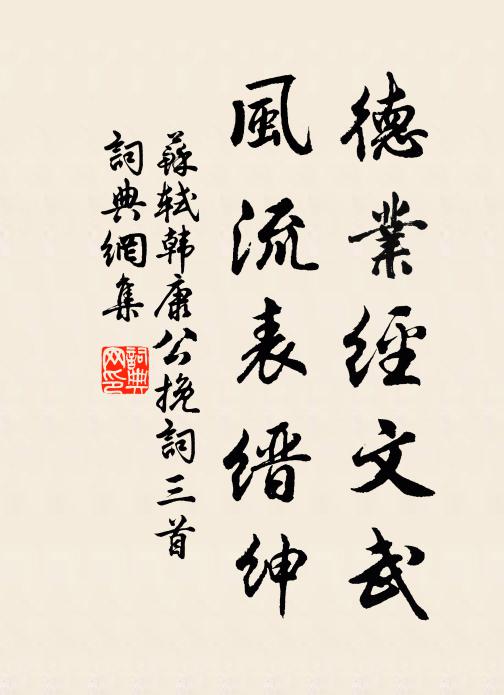 德業經文武
風流表縉紳
蘇軾韩康公挽詞三首
詞典網集
詞典
网印